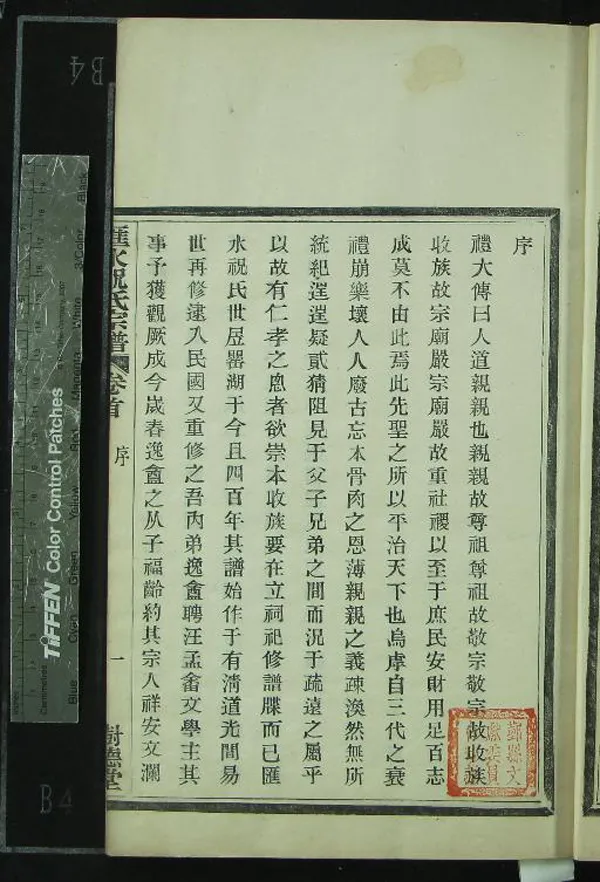 序
禮大傳曰人道親親也親親故尊祖尊祖故敬宗敬宗故收族
收族故宗廟嚴宗廟嚴故重社稷以至于庶民安財用足百志
成莫不由此焉此先聖之所以平治天下也烏虖自三代之衰
禮崩樂壞人人廢古忘本骨肉之恩薄親親之義疎渙然無所
統紀逞逞疑貳猜阻見于父子兄弟之間而況于疏遠之屬乎
以故有仁孝之恖者欲崇本收族要在立祠祀修譜牒而已匯
水祝氏世居噐湖于今且四百年其譜始作于有淸道光間易
世再修逮入民國又重修之吾內弟逸盦聘汪孟畬文學主其
事予獲觀厥成今歲春逸盦之从子福齡約其宗人祥安文瀾
匯水祝氏宗譜 卷首 序 一 樹德堂
TIFFEN Color Control Patches
B4
B4